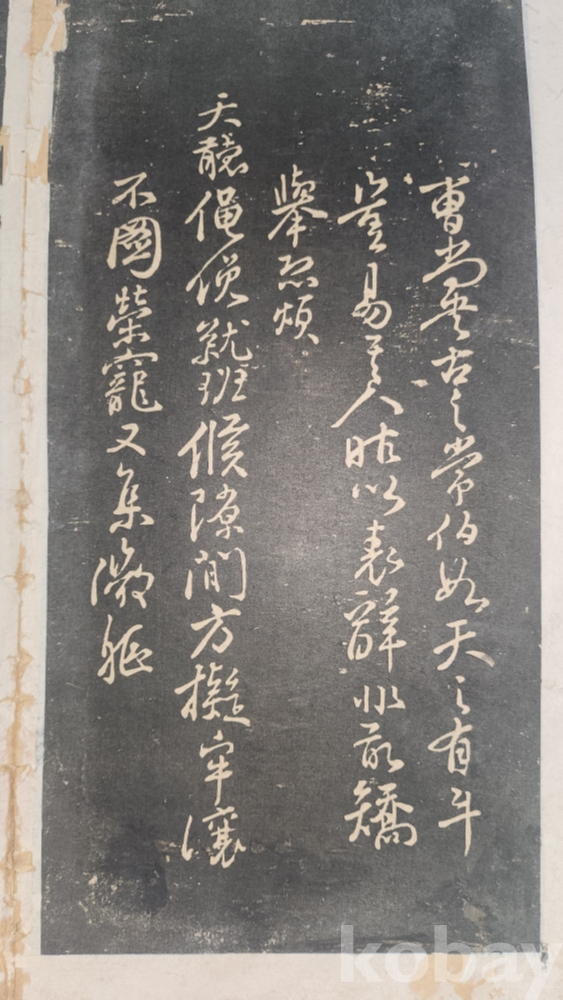 曹尚書古之常伯如天之有斗
豈易其人昨以表辭非敢矯
舉恐煩
天聽僶俛就班候隙間方擬牢讓
不圖榮寵又集微軀
kobay